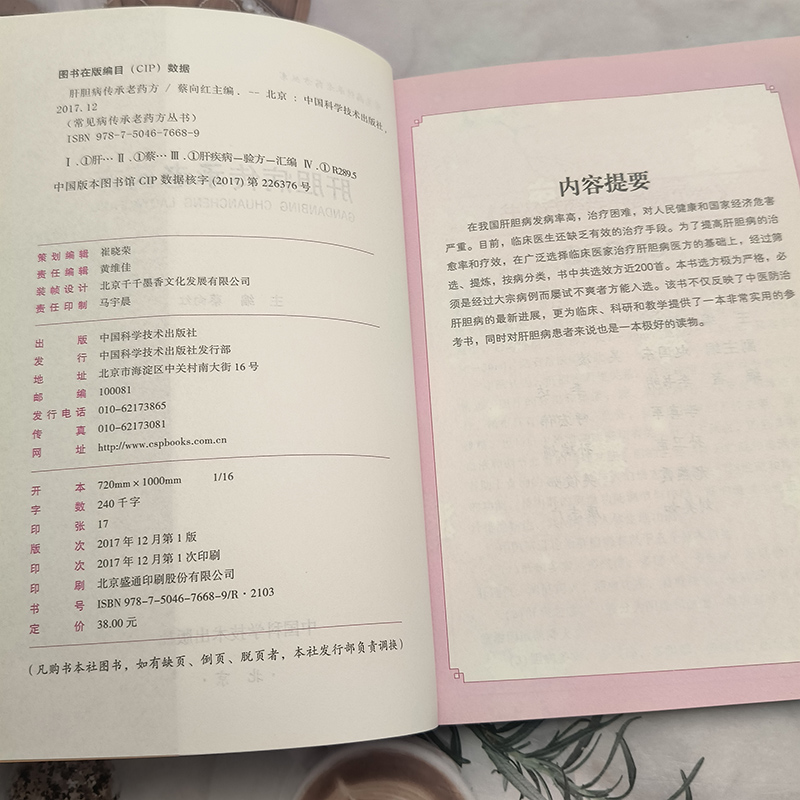 图书在版编目（CIP）数据
肝胆病传承老药方 / 蔡向红主编． -- 北京 : 中国科学技术出版社，
2017.12
（常见病传承老药方丛书）
ISBN 978-7-5046-7668-9
Ⅰ．①肝… Ⅱ．①蔡… Ⅲ．①肝疾病—验方—汇编 Ⅳ．①R289.5
中国版本图书馆 CIP 数据核字 (2017) 第 226376 号
策划编辑 崔晓荣
责任编辑 黄维佳
装帧设计 北京千千墨香文化发展有限公司
责任印制 马宇晨
出 版 中国科学技术出版社
发 行 中国科学技术出版社发行部
地 址 北京市海淀区中关村南大街 16 号
邮 编 100081
发行电话 010-62173865
传 真 010-62173081
网 址 http://www.cspbooks.com.cn
开 本 720mm×1000mm 1/16
字 数 240 千字
印 张 17
版 次 2017 年 12 月第 1 版
印 次 2017 年 12 月第 1 次印刷
印 刷 北京盛通印刷股份有限公司
书 号 ISBN 978-7-5046-7668-9/R·2103
定 价 38.00 元
（凡购书本社图书，如有缺页、倒页、脱页者，本社发行部负责调换）
内容提要
在我国肝胆病发病率高，治疗困难，对人民健康和国家经济危害
严重。目前，临床医生还缺乏有效的治疗手段。为了提高肝胆病的治
愈率和疗效，在广泛选择临床医家治疗肝胆病医方的基础上，经过筛
选、提炼，按病分类，书中共选效方近200首。本书选方极为严格，必
须是经过大宗病例而屡试不爽者方能入选。该书不仅反映了中医防治
肝胆病的最新进展，更为临床、科研和教学提供了一本非常实用的参
考书，同时对肝胆病患者来说也是一本极好的读物。